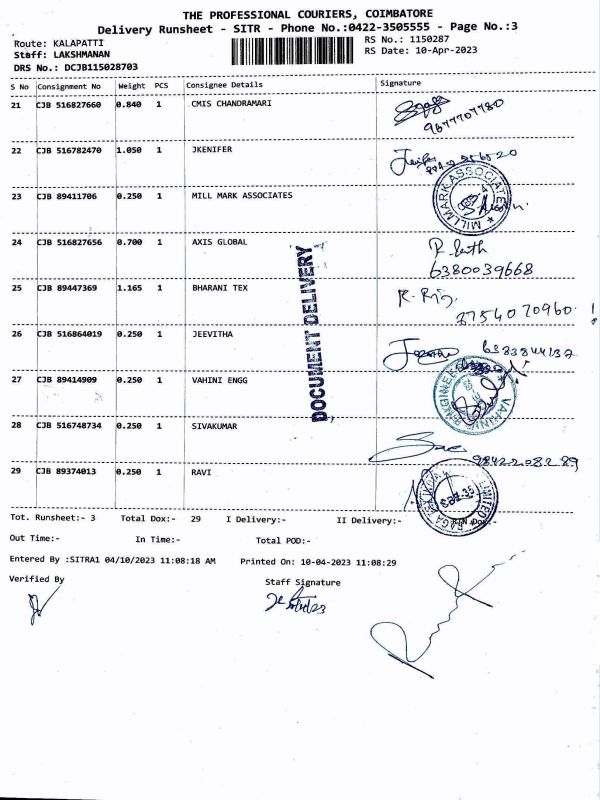 THE PROFESSIONAL COURIERS, COIMBATORE
Delivery Runsheet - SITR - Phone No.:0422-3505555 - Page No.:3
Route: KALAPATTI
RS No.: 1150287
Staff: LAKSHMANAN
RS Date: 10-Apr-2023
DRS No.: DCJB115028703
S No Consignment No Weight PCS Consignee Details Signature
21 CJB 516827660 0.840 1 CMIS CHANDRAMARI
9677707780
22 CJB 516782470 1.050 1 JKENIFER
23 CJB 89411706 0.250 1 MILL MARK ASSOCIATES
MILLMARK ASSOCIATES
24 CJB 516827656 0.700 1 AXIS GLOBAL
6380039668
25 CJB 89447369 1.165 1 BHARANI TEX
DOCUMENT DELIVERY
26 CJB 516864019 0.250 1 JEEVITHA
27 CJB 89414909 0.250 1 VAHINI ENGG
28 CJB 516748734 0.250 1 SIVAKUMAR
29 CJB 89374013 0.250 1 RAVI
LIMITED
Tot. Runsheet:- 3 Total Dox:- 29 I Delivery:- II Delivery:-
Out Time:- In Time:- Total POD:-
Entered By :SITRA1 04/10/2023 11:08:18 AM Printed On: 10-04-2023 11:08:29
Verified By Staff Signature